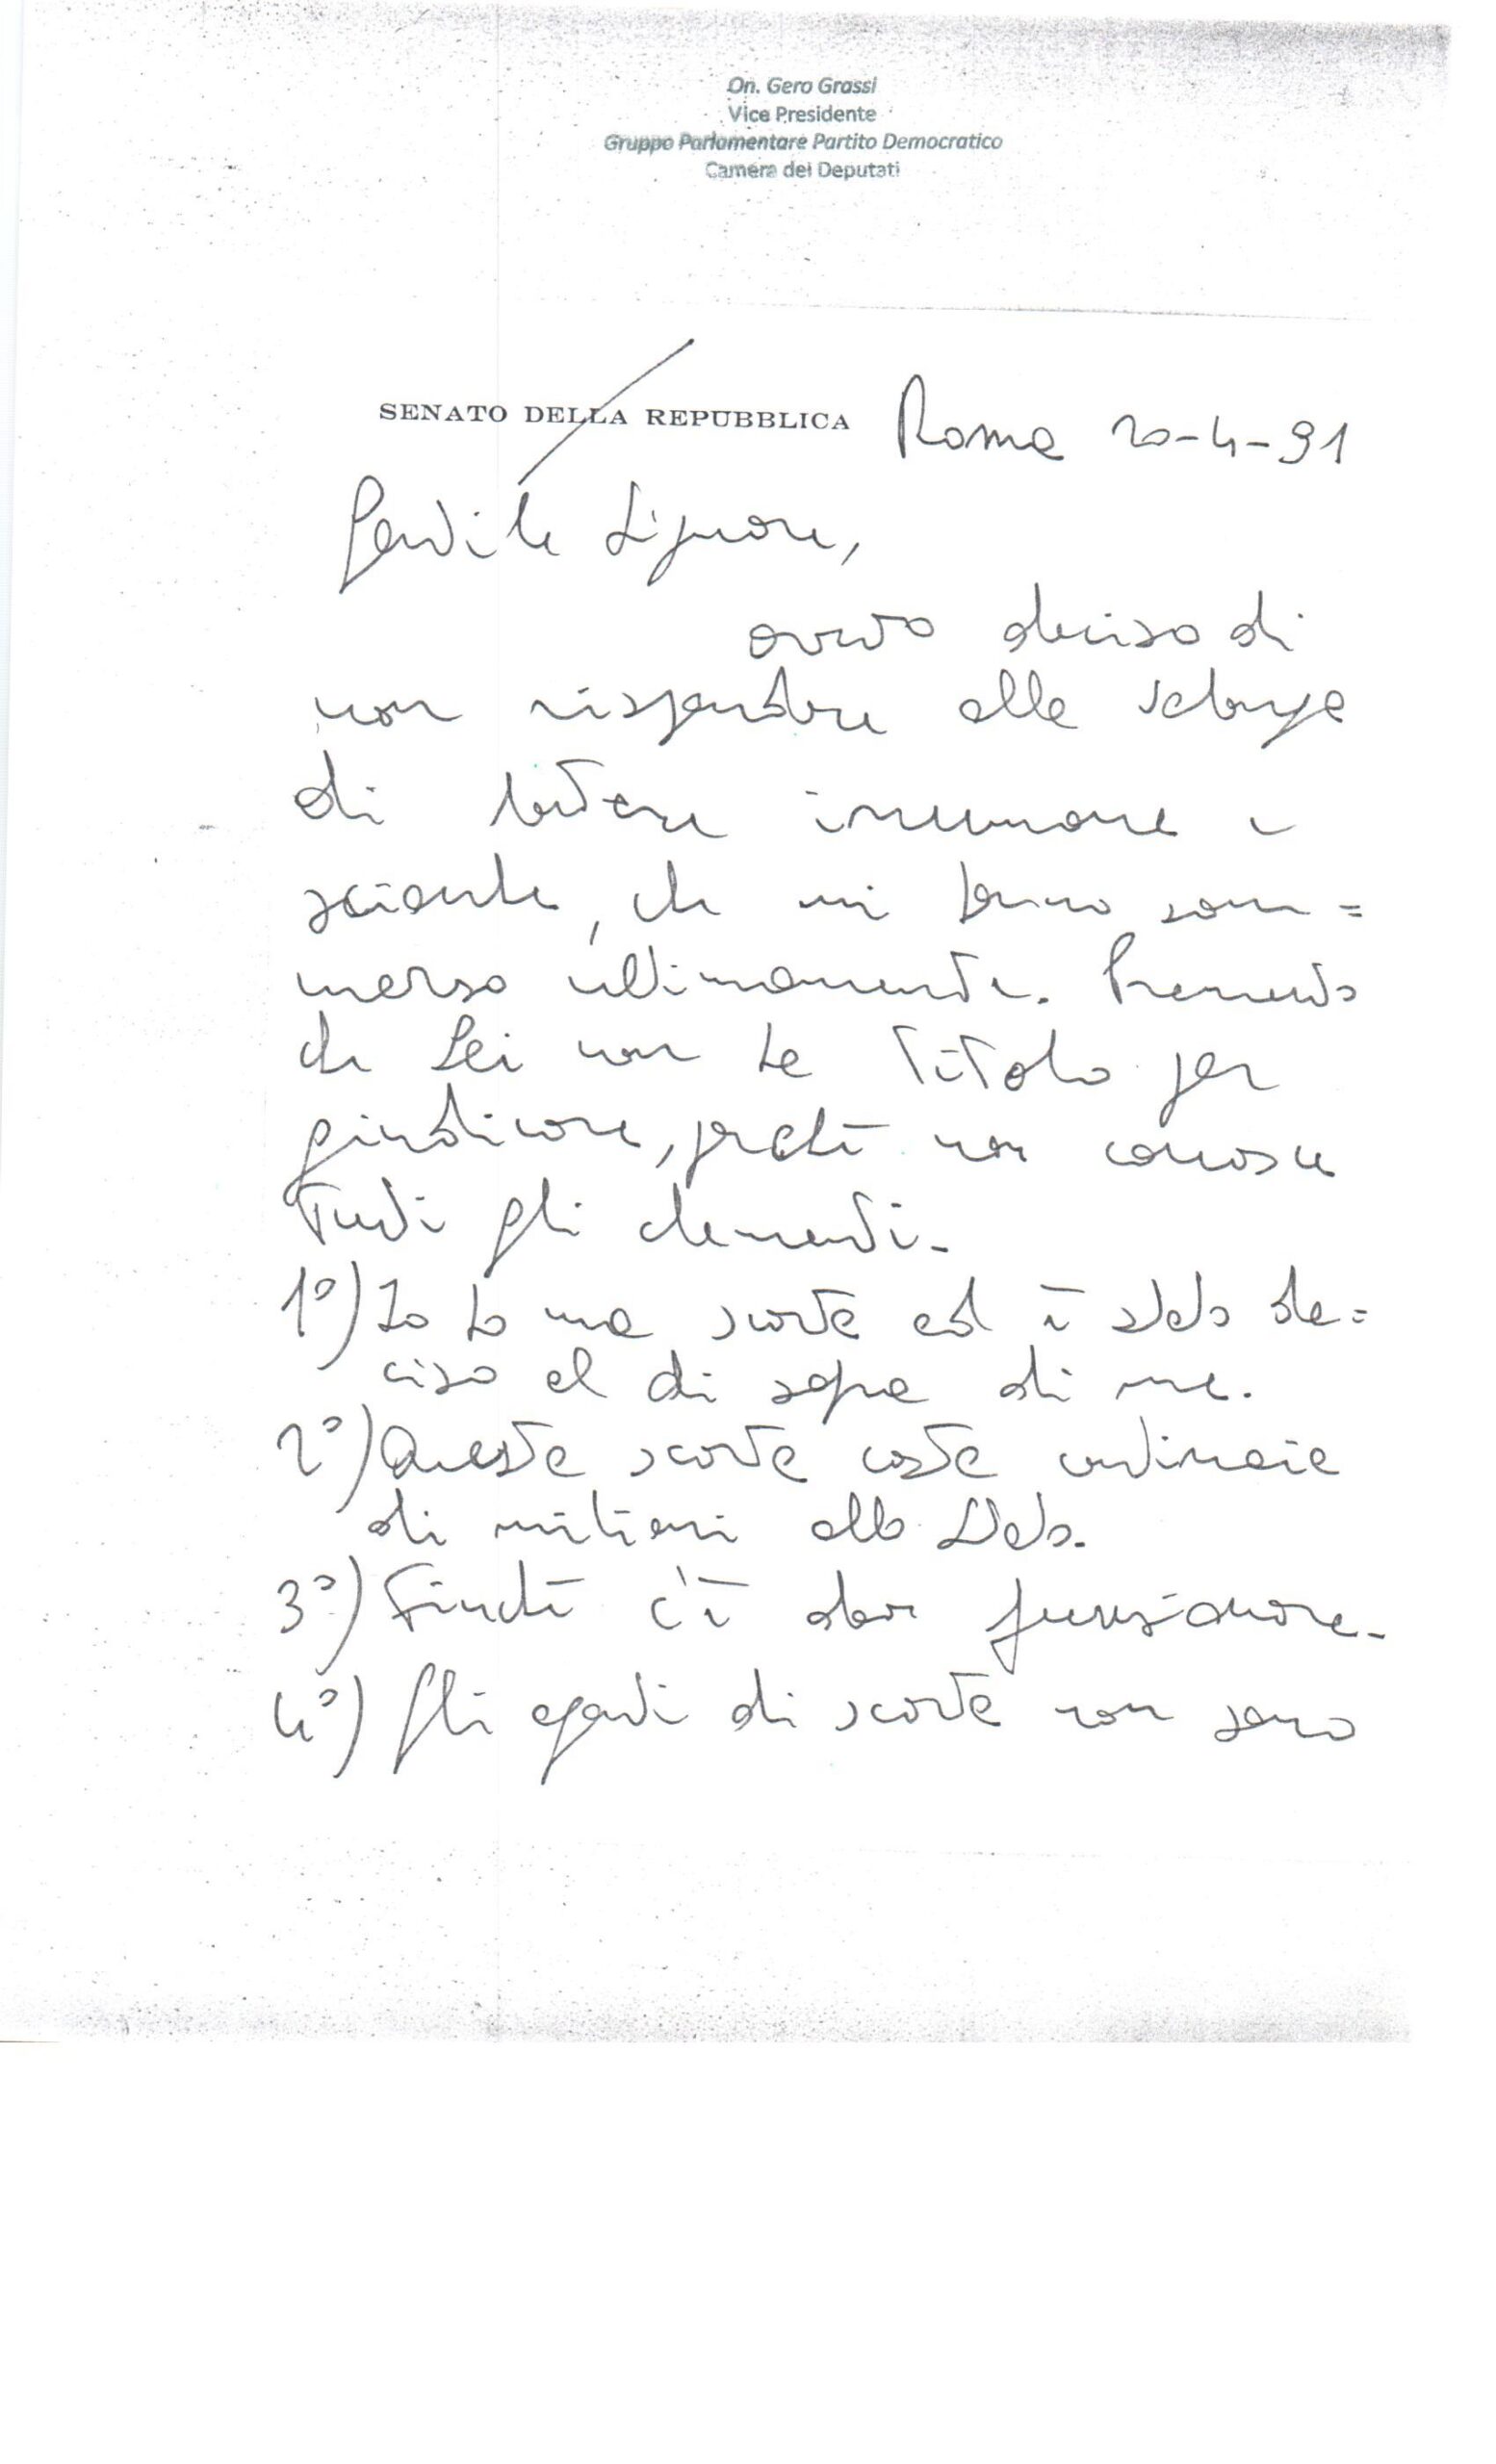 On. Gero Grassi
Vice Presidente
Gruppo Parlamentare Partito Democratico
Camera dei Deputati
SENATO DELLA REPUBBLICA Roma 20-4-91
Gentile Signore,
avevo deciso di
non rispondere alle
di lettere e
, che mi hanno som=
merso ultimamente. Premesso
che Lei non ha titolo per
giudicare, perché non conosce
tutti gli elementi.
1°) Io ho una scorta ed è stato de=
ciso al di sopra di me.
2°) Questa scorta costa centinaia
di milioni allo Stato.
3°) Finché c'è deve funzionare.
4°) Gli agenti di scorta non sono